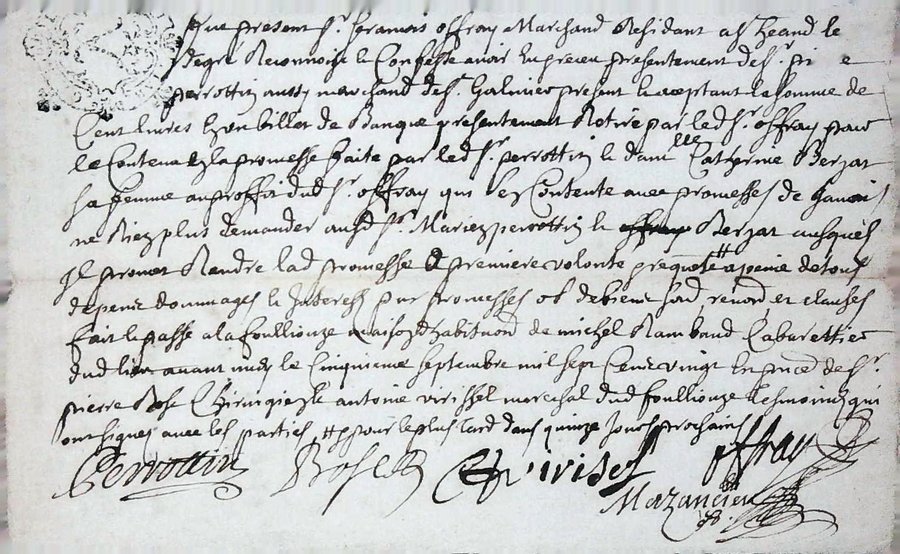 Fut present sr francois offray Marchand Residant a st heand le
Regré Reconnoit & Confesse avoir heu & receu presentement de sr pi e
perrottin aussy marchand de st Galmier present & aceptant la somme de
Cent livres En un billet de Banque presentement Retiré par led sr offray pour
le Contenu En la promesse faite par led sr perrottin & damlle Catherine Berzat
sa femme au proffit dud sr offray qui sen Contente avec promesses de Jamais
ne Rien plus demander ausd sr Mariez perrottin & Berzat ausquels
Il promet Rendre lad promesse a premiere volonte # a peine de tous
depenc dommages & Interests par promesses ob de biens soud renond et clauses
fait & passe a la foullouze maison d habitaond de michel Rambaud Cabarettier
dud lieu avant midy le Cinquieme septembre mil sept Cens vingt En pnce de sr
pierre Rose Chirurgien & antoine virissel marechal dud foullouze tesmoins qui
ont signes avec les parties # pour le plus tard dans quinze Jours prochains
Perrottin Rose virisel offray
Mazancieu